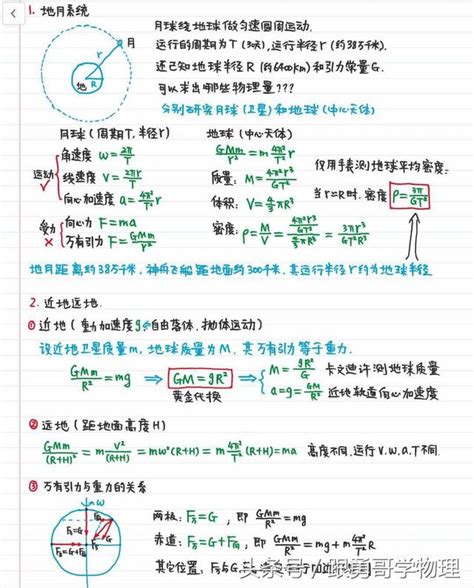 1. 地月系统
月球绕地球做匀速圆周运动.
运行的周期为T(30天),运行半径r(约38万千米).
还已知地球半径R(约6400km)和引力常量G.
可以求出哪些物理量???
分别研究月球(卫星)和地球(中心天体)
月
r
地 R
月球(周期T,半径r) 地球(中心天体)
运动✓
角速度 ω=2π/T
线速度 v=2πr/T
向心加速度 a=4π²/T² r
受力×
向心力 F=ma
万有引力 F=GMm/r²
GMm/r²=m 4π²/T² r
质量: M=4π²r³/GT²
体积: V=4/3 πR³
密度: ρ=M/V=(4π²r³/GT²)/(4/3 πR³)=3πr³/GT²R³
仅用手表测地球平均密度:
当r≈R时, 密度 ρ=3π/GT²
地月距离约38万千米, 神舟飞船距地面约300千米, 其运行半径r约为地球半径
2. 近地远地.
① 近地(重力加速度g⇔自由落体、抛体运动)
设近地卫星质量m, 地球质量为M, 其万有引力等于重力.
GMm/R²=mg ⇒ GM=gR² ⇒
黄金代换
M=gR²/G 卡文迪许测地球质量
a=g=GM/R² 近地轨道向心加速度
② 远地(距地面高度H)
GMm/(R+H)²=m V²/(R+H)=mω²(R+H)=m 4π²/T² (R+H)=ma 高度不同,运行V.ω.a.T不同.
③ 万有引力与重力的关系
ω
F引=G
F引
F引=G+F向
两极: F引=G, 即 GMm/R²=mg
赤道: F引=G+F向, 即 GMm/R²=mg+m 4π²/T² R
其它位置, F引与G
头条号 / 跟勇哥学物理